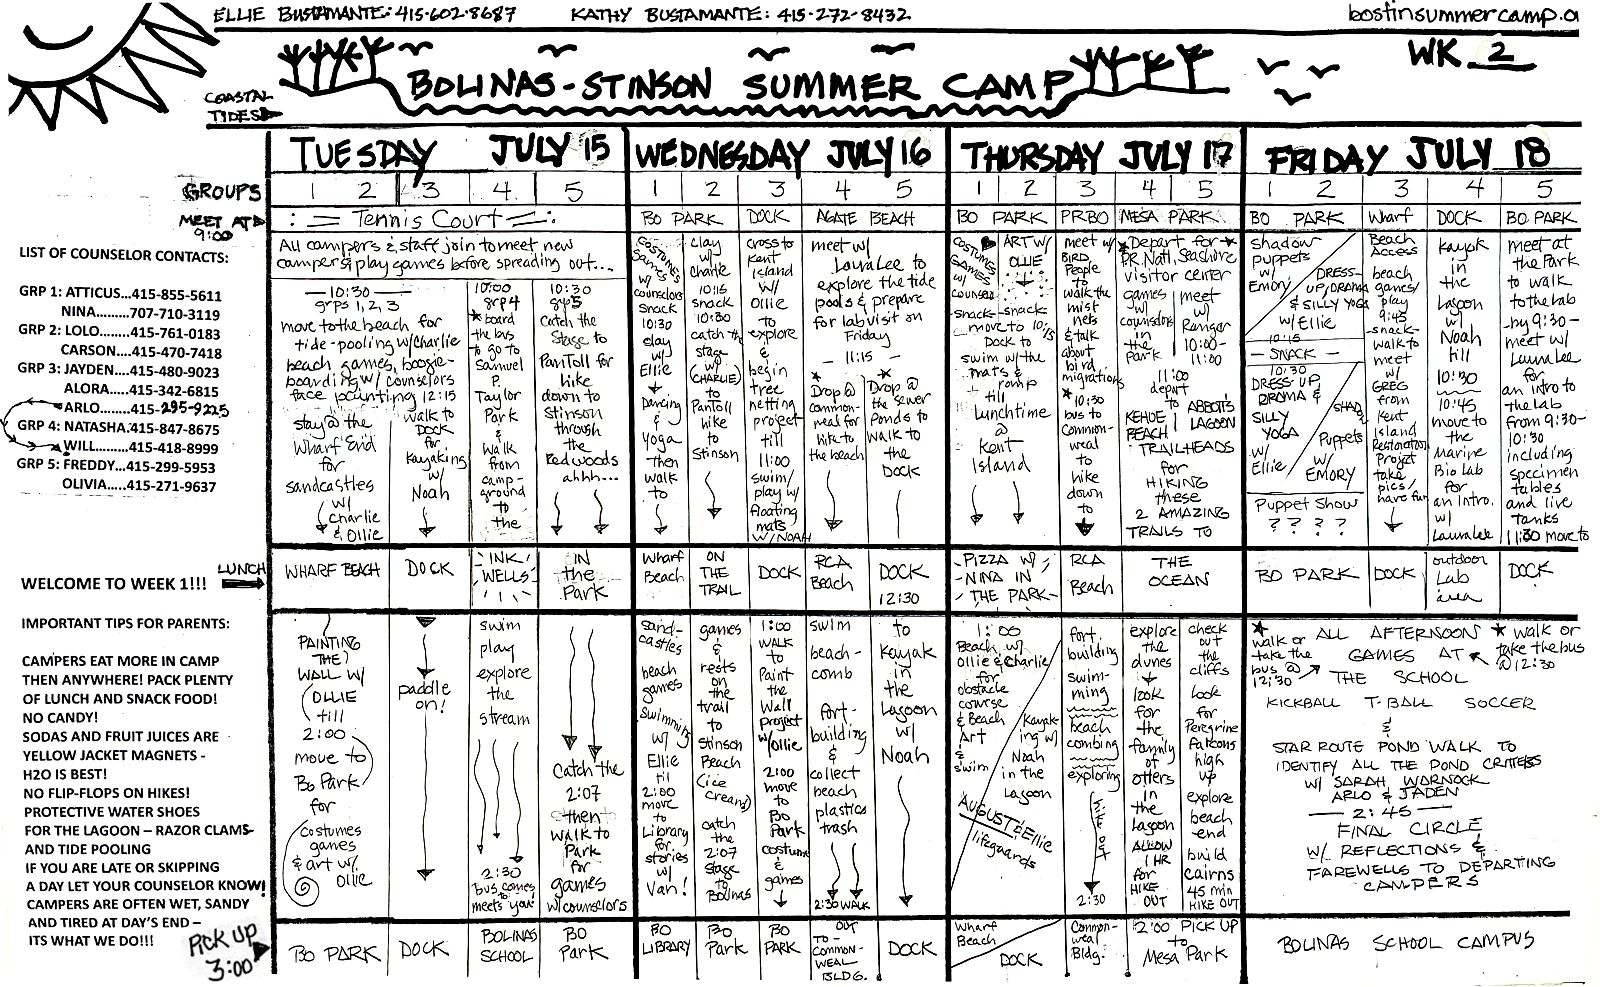 ELLIE BUSTAMANTE: 415·602·8687 KATHY BUSTAMANTE: 415-272-8432 bostinsummercamp.o
BOLINAS-STINSON SUMMER CAMP
WK 2
COASTAL
TIDES
TUESDAY JULY 15
WEDNESDAY JULY 16
THURSDAY JULY 17
FRIDAY JULY 18
GROUPS
1 2 3 4 5
1 2 3 4 5
1 2 3 4 5
1 2 3 4 5
MEET AT
9:00
Tennis Court
BO PARK DOCK AGATE BEACH
BO PARK PRBO MESA PARK
BO PARK Wharf DOCK BO PARK
LIST OF COUNSELOR CONTACTS:
GRP 1: ATTICUS...415-855-5611
NINA.........707-710-3119
GRP 2: LOLO....415-761-0183
CARSON....415-470-7418
GRP 3: JAYDEN...415-480-9023
ALORA.....415-342-6815
ARLO......415-295-9225
GRP 4: NATASHA.415-847-8675
WILL........415-418-8999
GRP 5: FREDDY...415-299-5953
OLIVIA.....415-271-9637
WELCOME TO WEEK 1!!!
IMPORTANT TIPS FOR PARENTS:
CAMPERS EAT MORE IN CAMP
THEN ANYWHERE! PACK PLENTY
OF LUNCH AND SNACK FOOD!
NO CANDY!
SODAS AND FRUIT JUICES ARE
YELLOW JACKET MAGNETS -
H2O IS BEST!
NO FLIP-FLOPS ON HIKES!
PROTECTIVE WATER SHOES
FOR THE LAGOON – RAZOR CLAMS-
AND TIDE POOLING
IF YOU ARE LATE OR SKIPPING
A DAY LET YOUR COUNSELOR KNOW!
CAMPERS ARE OFTEN WET, SANDY
AND TIRED AT DAY'S END –
ITS WHAT WE DO!!!
All campers & staff join to meet new
campers & play games before spreading out...
10:30
grps 1, 2, 3
move to the beach for
tide-pooling w/Charlie
beach games, boogie-
boarding w/ counselors
face painting 12:15
stay @ the
Wharf End
for
sandcastles
w/
Charlie
& Ollie
walk to
DOCK
for
Kayaking
w/
Noah
10:00
grp 4
board
the bus
to go to
Samuel
P.
Taylor
Park
&
walk
from
camp-
ground
to
the
10:30
grp5
Catch the
Stage to
PanToll for
hike
down to
Stinson
through
the
Redwoods
ahhh...
COSTUMES
GAMES
w/
counselors
snack
10:30
play
w/
Ellie
Dancing
&
yoga
then
walk
to
clay
w/
Charlie
10:15
snack
10:30
catch the
stage
w/
(CHARLIE)
to
PanToll
hike
to
Stinson
cross to
Kent
Island
w/
Ollie
to
explore
&
begin
tree
netting
project
till
11:00
swim/
play w/
floating
mats
w/NOAH
meet w/
LauraLee to
explore the tide
pools & prepare
for lab visit on
Friday
11:15
Drop @
common-
weal for
hike to
the beach
Drop @
the sewer
Ponds to
walk to
the
DOCK
COSTUMES
GAMES
ART w/
OLLIE
-snack-
-snack-
move to 10/15
Dock to
swim w/the
mats &
ramp
till
lunchtime
@
Kent
Island
meet w/
BIRD
People
to
walk the
mist
nets
& talk
about
bird
migrations
10:30
bus to
Common-
weal
to
hike
down
to
Depart for
Pt. Natl. Seashore
visitor center
games
w/
counselors
in
the
Park
meet
w/
Ranger
10:00-
11:00
11:00
depart
to
KEHOE
BEACH
ABBOTTS
LAGOON
TRAILHEADS
for
HIKING
these
2 AMAZING
TRAILS TO
Shadow
puppets
w/
Emory
DRESS-
UP/DRAMA
& SILLY YOGA
w/Ellie
10:15
- SNACK -
10:30
DRESS UP
DRAMA &
SILLY
YOGA
w/
Ellie
SHADOW
Puppets
w/
EMORY
Puppet Show
? ? ? ?
Beach
Access
beach
games/
play
9:45
-snack-
walk to
meet
w/
GREG
from
Kent
Island
Restoration
Project
take
pics/
have fun
Kayak
in
the
Lagoon
w/
Noah
till
10:30
10:45
move to
the
Marine
Bio Lab
for
an Intro.
w/
LauraLee
meet at
the Park
to walk
to the lab
-by 9:30-
meet w/
LauraLee
for
an intro to
the Lab
from 9:30-
10:30
including
specimen
tables
and live
tanks
11:30 move to
LUNCH
WHARF BEACH
DOCK
INK
WELLS
IN
the
Park
Wharf
Beach
ON
THE
TRAIL
DOCK
RCA
Beach
DOCK
12:30
PIZZA w/
NINA IN
THE PARK
RCA
Beach
THE
OCEAN
BO PARK
DOCK
outdoor
Lab
area
DOCK
PAINTING
THE
WALL w/
OLLIE
till
2:00
move to
Bo Park
for
costumes
games
& art w/
Ollie
paddle
on!
swim
play
explore
the
stream
2:30
bus comes
to
meets you
Catch the
2:07
then
walk to
Park
for
games
w/counselors
sand-
castles
beach
games
swimming
w/
Ellie
til
2:00
move
to
Library
for
stories
w/
Van!
games
&
rests
on
the
trail
to
Stinson
Beach
(ice
cream)
catch
the
2:07
stage
to
Bolinas
1:00
WALK
to
Paint
the
Wall
project
w/Ollie
2:00
move
to
Bo
Park
costume
&
games
swim
beach-
comb
fort-
building
&
collect
beach
plastics
trash
2:30 WALK
to
Kayak
in
the
Lagoon
w/
Noah
1:00
Beach w/
Ollie & Charlie
for
obstacle
course
& Beach
Art
&
swim
Kayak-
ing w/
Noah
in the
Lagoon
AUGUST & Ellie
lifeguards
fort
building
swim-
ming
beach
combing
exploring
hike out
2:30
explore
the
dunes
look
for
the
family
of
otters
in
the
Lagoon
ALLOW
1 HR
for
HIKE
OUT
check
out
the
cliffs
look
for
Peregrine
falcons
high
up
explore
beach
end
build
cairns
45 min
HIKE OUT
walk or
take the
bus @
12:30
ALL AFTERNOON
GAMES AT
THE SCHOOL
walk or
take the bus
@ 12:30
KICKBALL T-BALL SOCCER
&
STAR ROUTE POND WALK TO
IDENTIFY ALL THE POND CRITTERS
w/ SARAH WARNOCK
ARLO & JADEN
2:45
FINAL CIRCLE
w/ REFLECTIONS &
FAREWELLS TO DEPARTING
CAMPERS
PICK UP
3:00
BO PARK
DOCK
BOLINAS
SCHOOL
BO
Park
BO
LIBRARY
Bo
Park
BO
PARK
OUT
TO-
COMMON-
WEAL
BLDG.
DOCK
Wharf
Beach
DOCK
Common-
weal
Bldg.
2:00 PICK UP
to
Mesa Park
BOLINAS SCHOOL CAMPUS